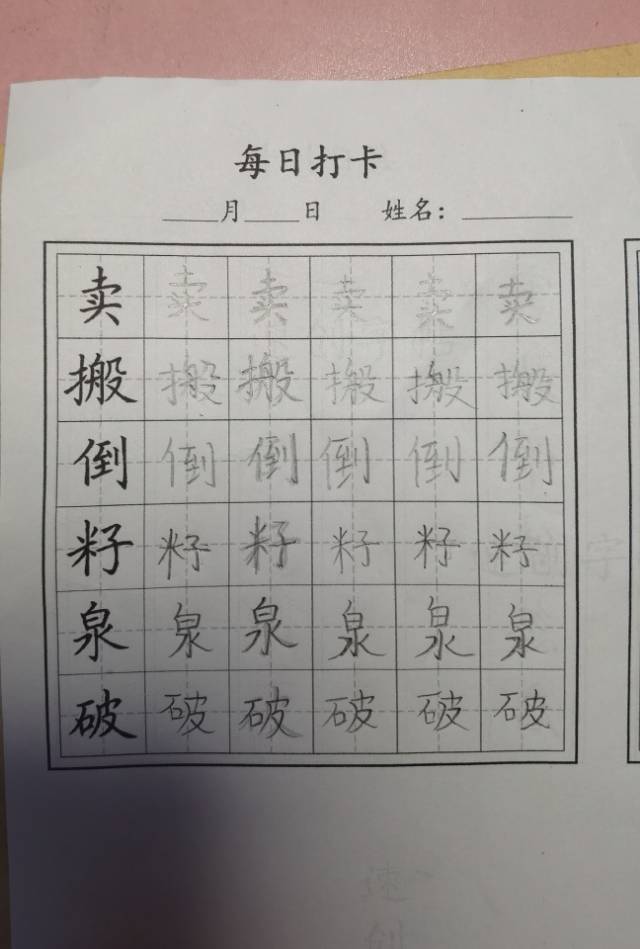 每日打卡
____月____日 姓名：________
卖 卖 卖 卖 卖 卖
搬 搬 搬 搬 搬 搬
倒 倒 倒 倒 倒 倒
籽 籽 籽 籽 籽 籽
泉 泉 泉 泉 泉 泉
破 破 破 破 破 破